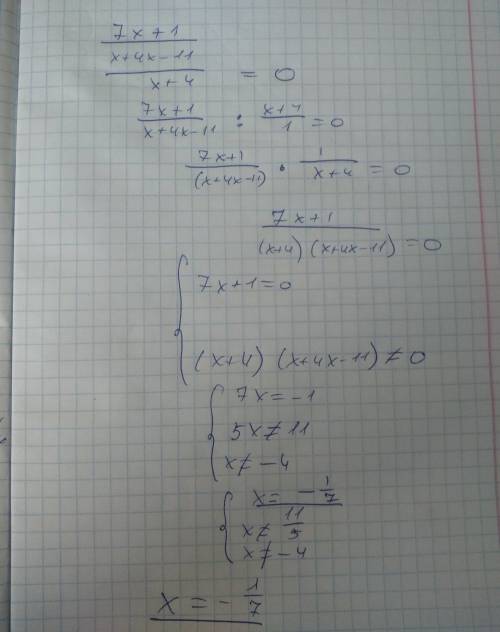 7x+1
x+4x-11
x+4 = 0
7x+1 / x+4x-11 : x+4 / 1 = 0
7x+1 / (x+4x-11) · 1 / x+4 = 0
7x+1 / (x+4) (x+4x-11) = 0
{ 7x+1=0
(x+4) (x+4x-11) ≠ 0
{ 7x = -1
5x ≠ 11
x ≠ -4
{ x = -1/7
x ≠ 11/5
x ≠ -4
x = -1/7